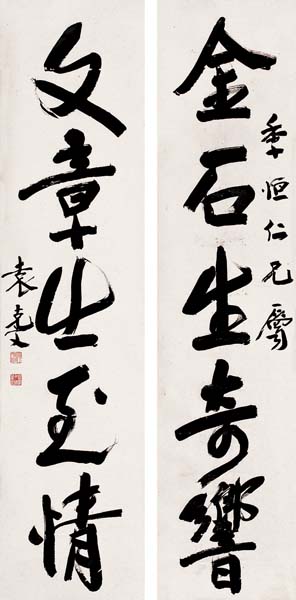 季恒仁兄屬
金石生奇響
文章出至情
袁克文